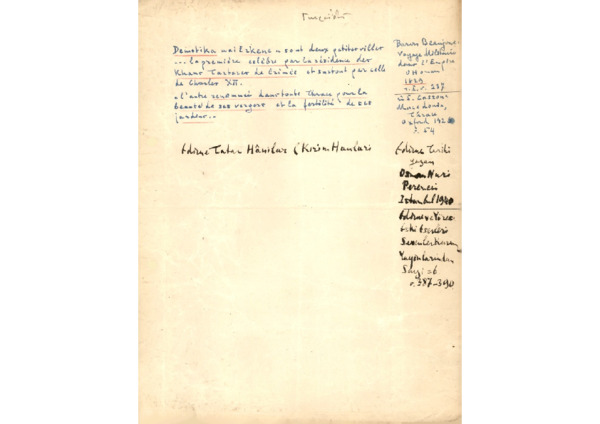 Demotika
sont deux petites villes
... la première célèbre par la résidence des
Khans Tartares de Crimée et surtout par celle
de Charles XII.
l'autre renommée dans toute Thrace pour la
beauté de ses vergers et la fertilité de ses
jardins..
Edirne Tatar Hânları (Kırım Hanları
Baron Beaujour
Voyage Militaire
dans l'Empire
Othoman
1829
Thrace
Oxford
Edirne Tarihi
yazan
Osman Nuri
Peremeci
Istanbul 1940
Edirne ve Yöresi
Eski Eserleri
Sevenler Kurumu
Yayınlarından
Sayı: 6
s. 387-390